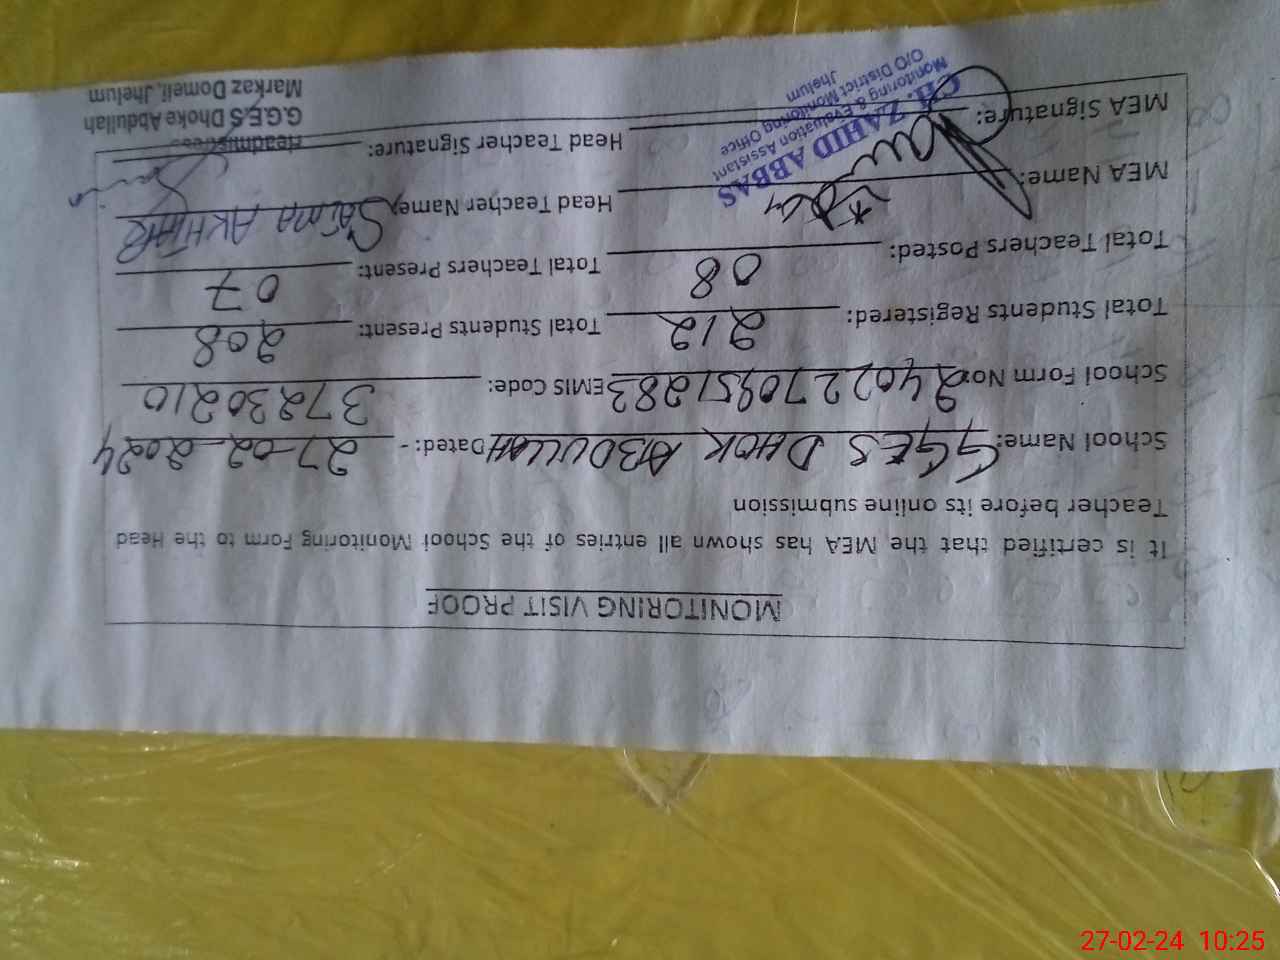 MONITORING VISIT PROOF
It is certified that the MEA has shown all entries of the School Monitoring Form to the Head
Teacher before its online submission
School Name: GGES DHOK ABDULLAH Dated: - 27-02-2024
School Form No: EMIS Code: 37230210
Total Students Registered: 212 Total Students Present: 208
Total Teachers Posted: 08 Total Teachers Present: 07
MEA Name: Head Teacher Name: SAIMA AKHTAR
MEA Signature: Head Teacher Signature:
CH. ZAHID ABBAS
Monitoring & Evaluation Assistant
O/O District Monitoring Office
Jhelum
Headmistress
G.G.E.S Dhoke Abdullah
Markaz Domeli, Jhelum
27-02-24 10:25